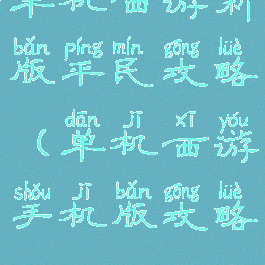 单机西游新
bǎn píng mín gōng lüè
版平民攻略
dān jī xī yóu
（单机西游
shǒu jī bǎn gōng lüè
手机版攻略